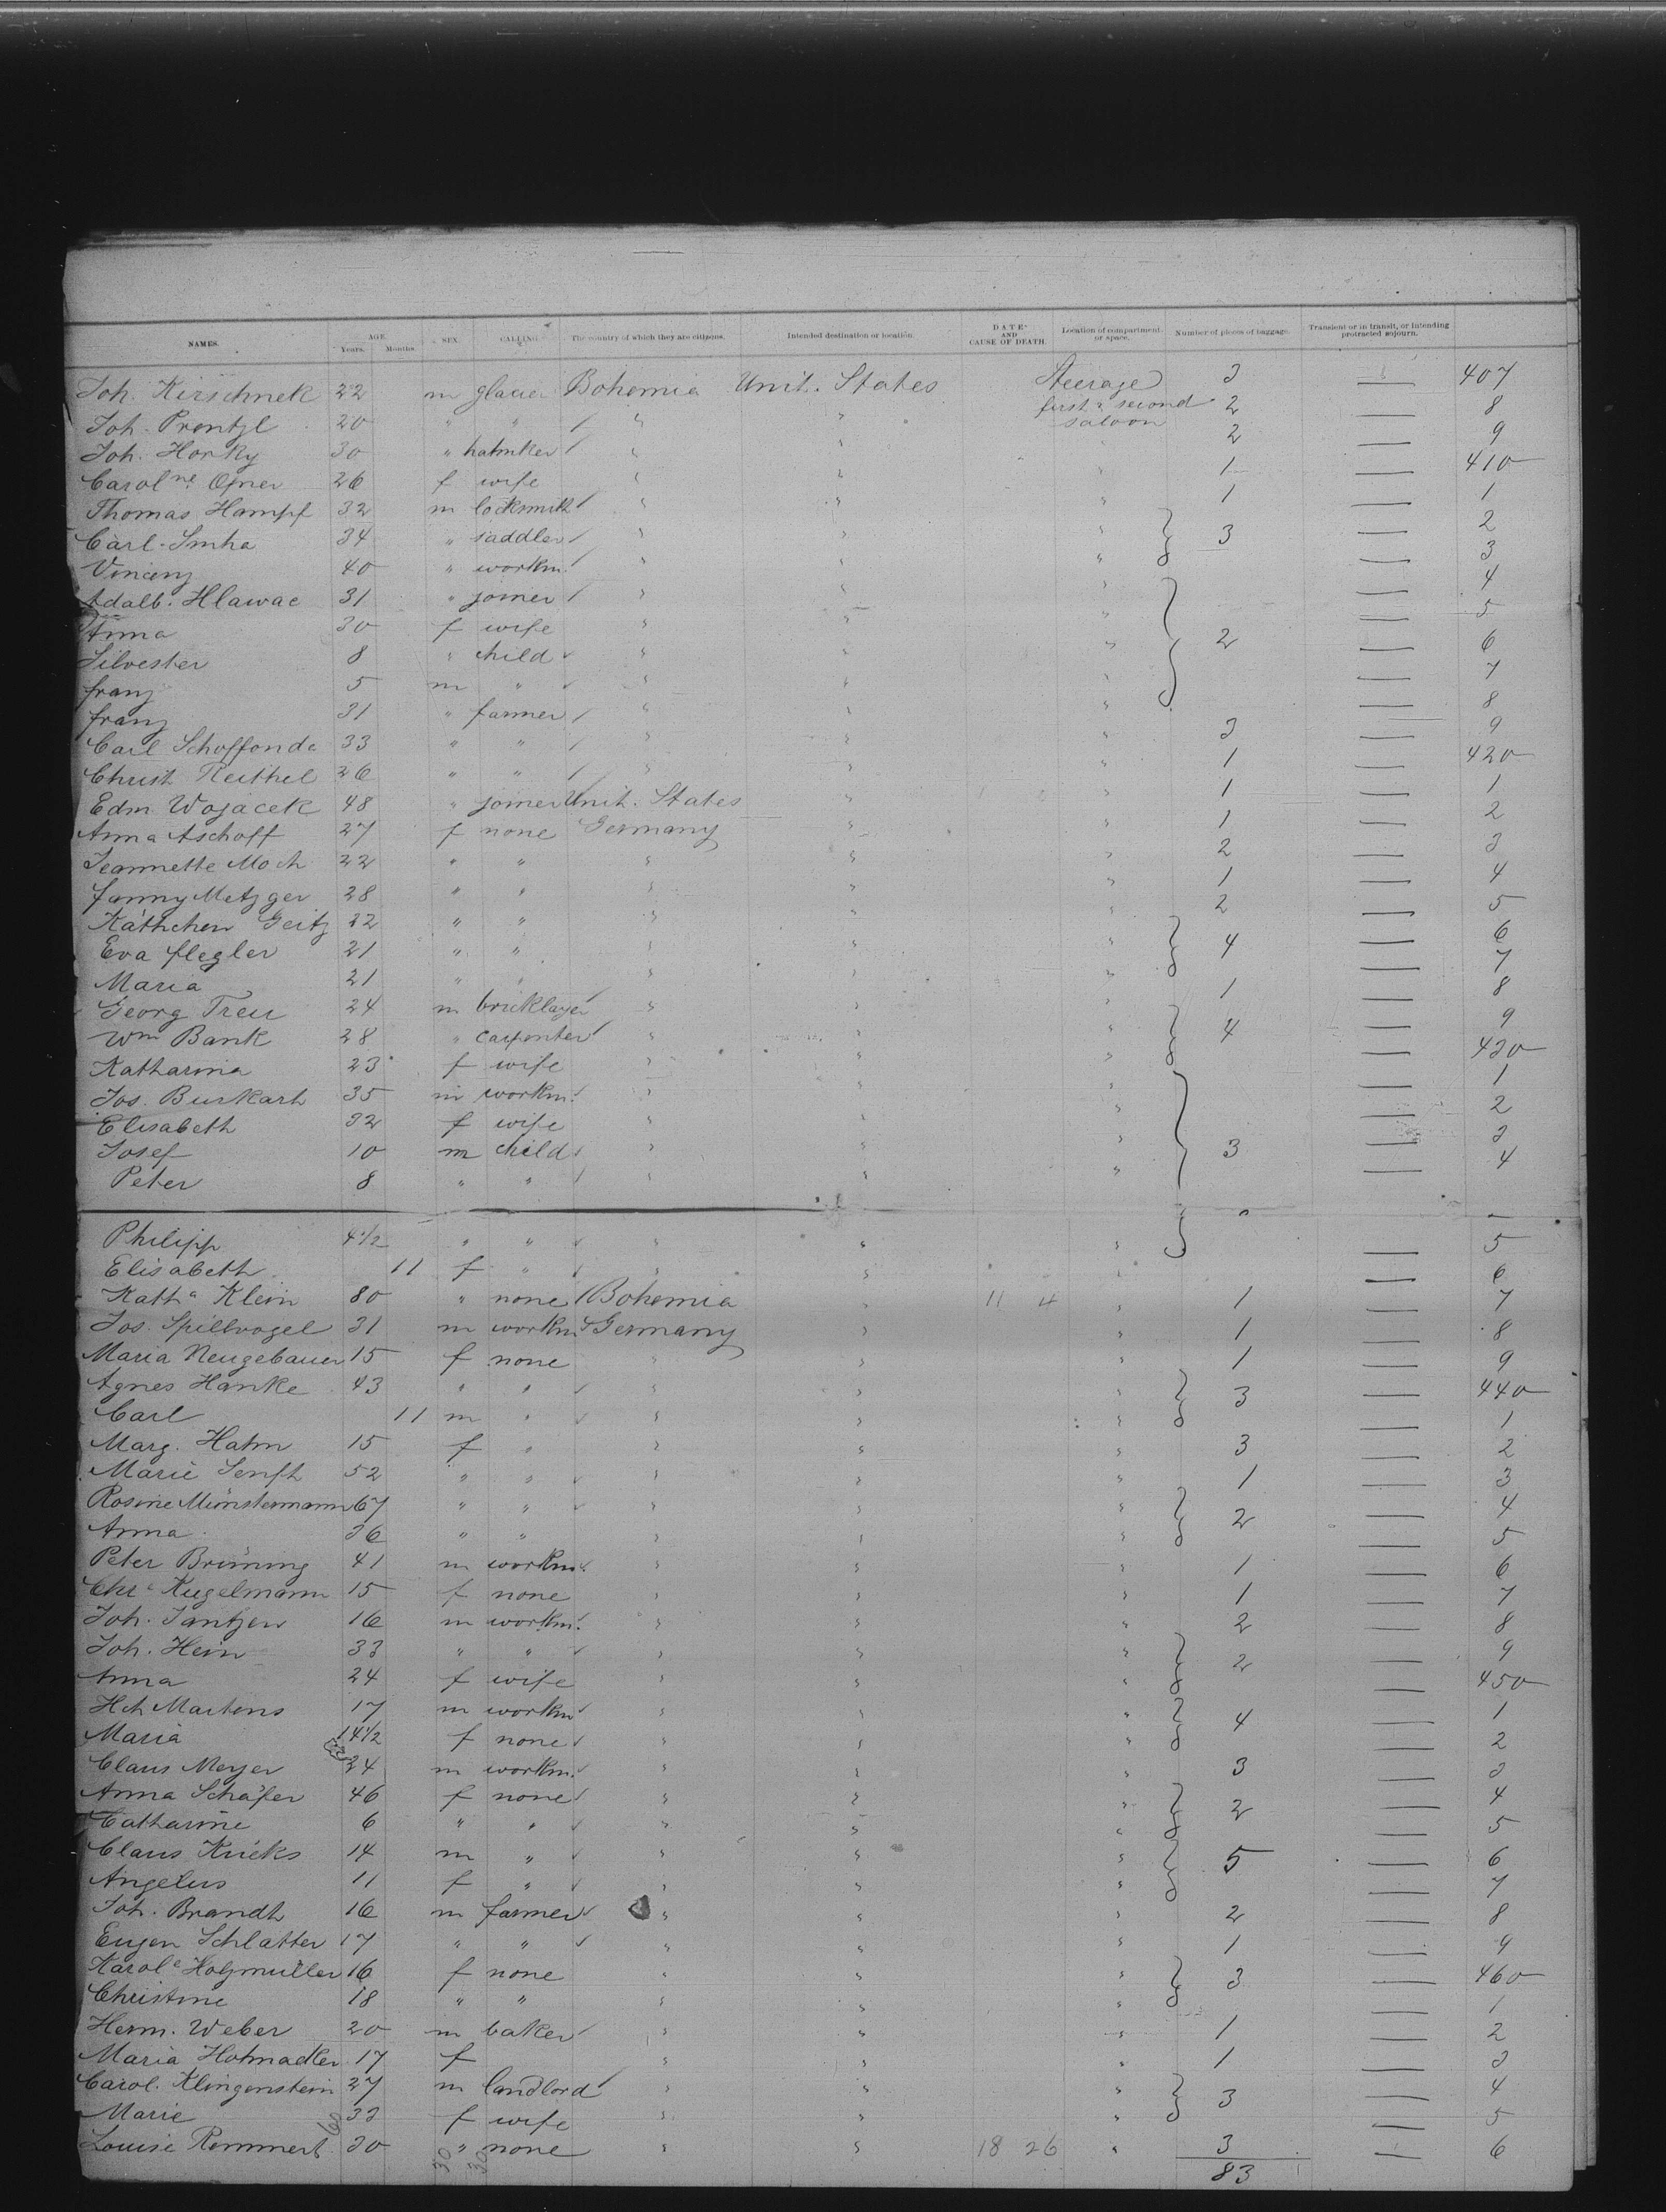 NAMES. AGE. Years. Months. SEX. CALLING The country of which they are citizens. Intended destination or location. DATE AND CAUSE OF DEATH. Location of compartment or space. Number of pieces of baggage. Transient or in transit, or intending protracted sojourn.
Joh. Kirschnek 22 m Bohemia Unit. States Steerage 3 — 407
Joh. Prentzl 20 " " " " first & second saloon 2 — 8
Joh. Horky 30 " hatmker " " " 2 — 9
Carolne Ofner 26 f wife " " " 1 — 410
Thomas Hampf 32 m locksmith " " " 1 — 1
Carl Smha 34 " saddler " " " 3 — 2
Vincenz 40 " workm. " " " — 3
Adalb. Hlawac 31 " joiner " " " — 4
Anna 30 f wife " " " — 5
Silvester 8 " child " " " 2 — 6
franz 5 m " " " " — 7
franz 31 " farmer " " " — 8
Carl Schoffonda 33 " " " " " 3 — 9
Christ. Reithel 26 " " " " " 1 — 420
Edm Wojacek 48 " joiner Unit. States " " 1 — 1
Anna Aschoff 27 f none Germany " " 1 — 2
Jeannette Moch 22 " " " " " 2 — 3
fanny Metzger 28 " " " " " 1 — 4
Käthchen Geitz 22 " " " " " 2 — 5
Eva flegler 21 " " " " " 4 — 6
Maria 21 " " " " " — 7
Georg Treu 24 m bricklayer " " " 1 — 8
Wm Bank 28 " carpenter " " " 4 — 9
Katharina 23 f wife " " " — 430
Jos. Burkart 35 m workm. " " " — 1
Elisabeth 32 f wife " " " — 2
Josef 10 m child " " " 3 — 3
Peter 8 " " " " " — 4
Philipp 4½ " " " " " — 5
Elisabeth 11 f " " " " — 6
Katha Klein 80 " none Bohemia " 11 4 " 1 — 7
Jos. Spillvogel 31 m workm Germany " " 1 — 8
Maria Neugebauer 15 f none " " " 1 — 9
Agnes Hanke 43 " " " " " 3 — 440
Carl 11 m " " " " — 1
Marg. Hahn 15 f " " " " 3 — 2
Marie Senft 52 " " " " " 1 — 3
Rosine Münstermann 67 " " " " " 2 — 4
Anna 36 " " " " " — 5
Peter Brüning 41 m workm. " " " 1 — 6
Chre Kugelmann 15 f none " " " 1 — 7
Joh. Jantzen 16 m workm. " " " 2 — 8
Joh. Hein 33 " " " " " 2 — 9
Anna 24 f wife " " " — 450
Hch Martens 17 m workm " " " 4 — 1
Maria 14½ f none " " " — 2
Claus Meyer 24 m workm. " " " 3 — 3
Anna Schäfer 46 f none " " " 2 — 4
Catharine 6 " " " " " — 5
Claus Kricks 14 m " " " " 5 — 6
Angelus 11 f " " " " — 7
Joh. Brandt 16 m farmer " " " 2 — 8
Eugen Schlatter 17 " " " " " 1 — 9
Karole Holzmüller 16 f none " " " 3 — 460
Christine 18 " " " " " — 1
Herm. Weber 20 m baker " " " 1 — 2
Maria Hotmadler 17 f " " " 1 — 3
Carol. Klingenstein 27 m landlord " " " 3 — 4
Marie 33 f wife " " " — 5
Louise Rommert 30 " none " " 18 26 " 3 — 6
60 30 30 83